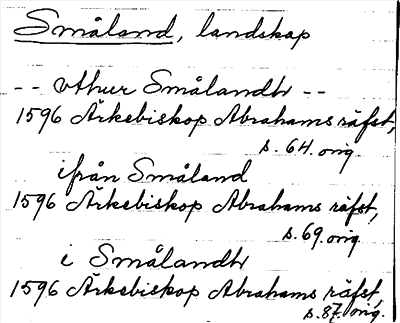 Småland, landskap
-- vthur Smålandh --
1596 Ärkebiskop Abrahams räfst,
s. 64. orig.
ifrån Småland
1596 Ärkebiskop Abrahams räfst,
s. 69. orig.
i Smålandh
1596 Ärkebiskop Abrahams räfst,
s. 87. orig.